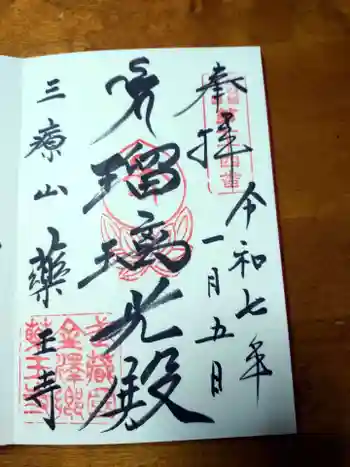 奉拝
令和七年
一月五日
瑠璃光殿
三療山
薬王寺